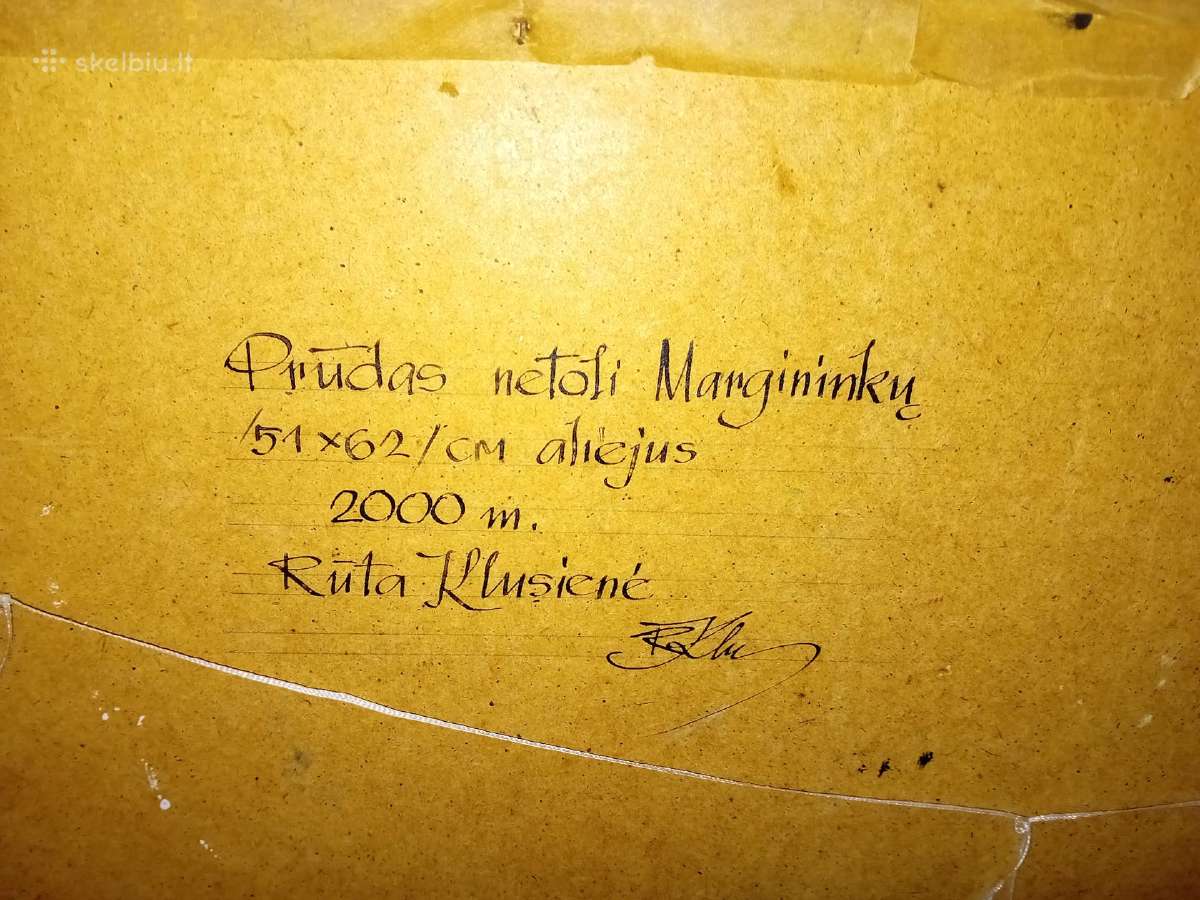 skelbiu.lt
Prūdas netoli Margininkų
/51×62/cm aliejus
2000 m.
Rūta Klusienė